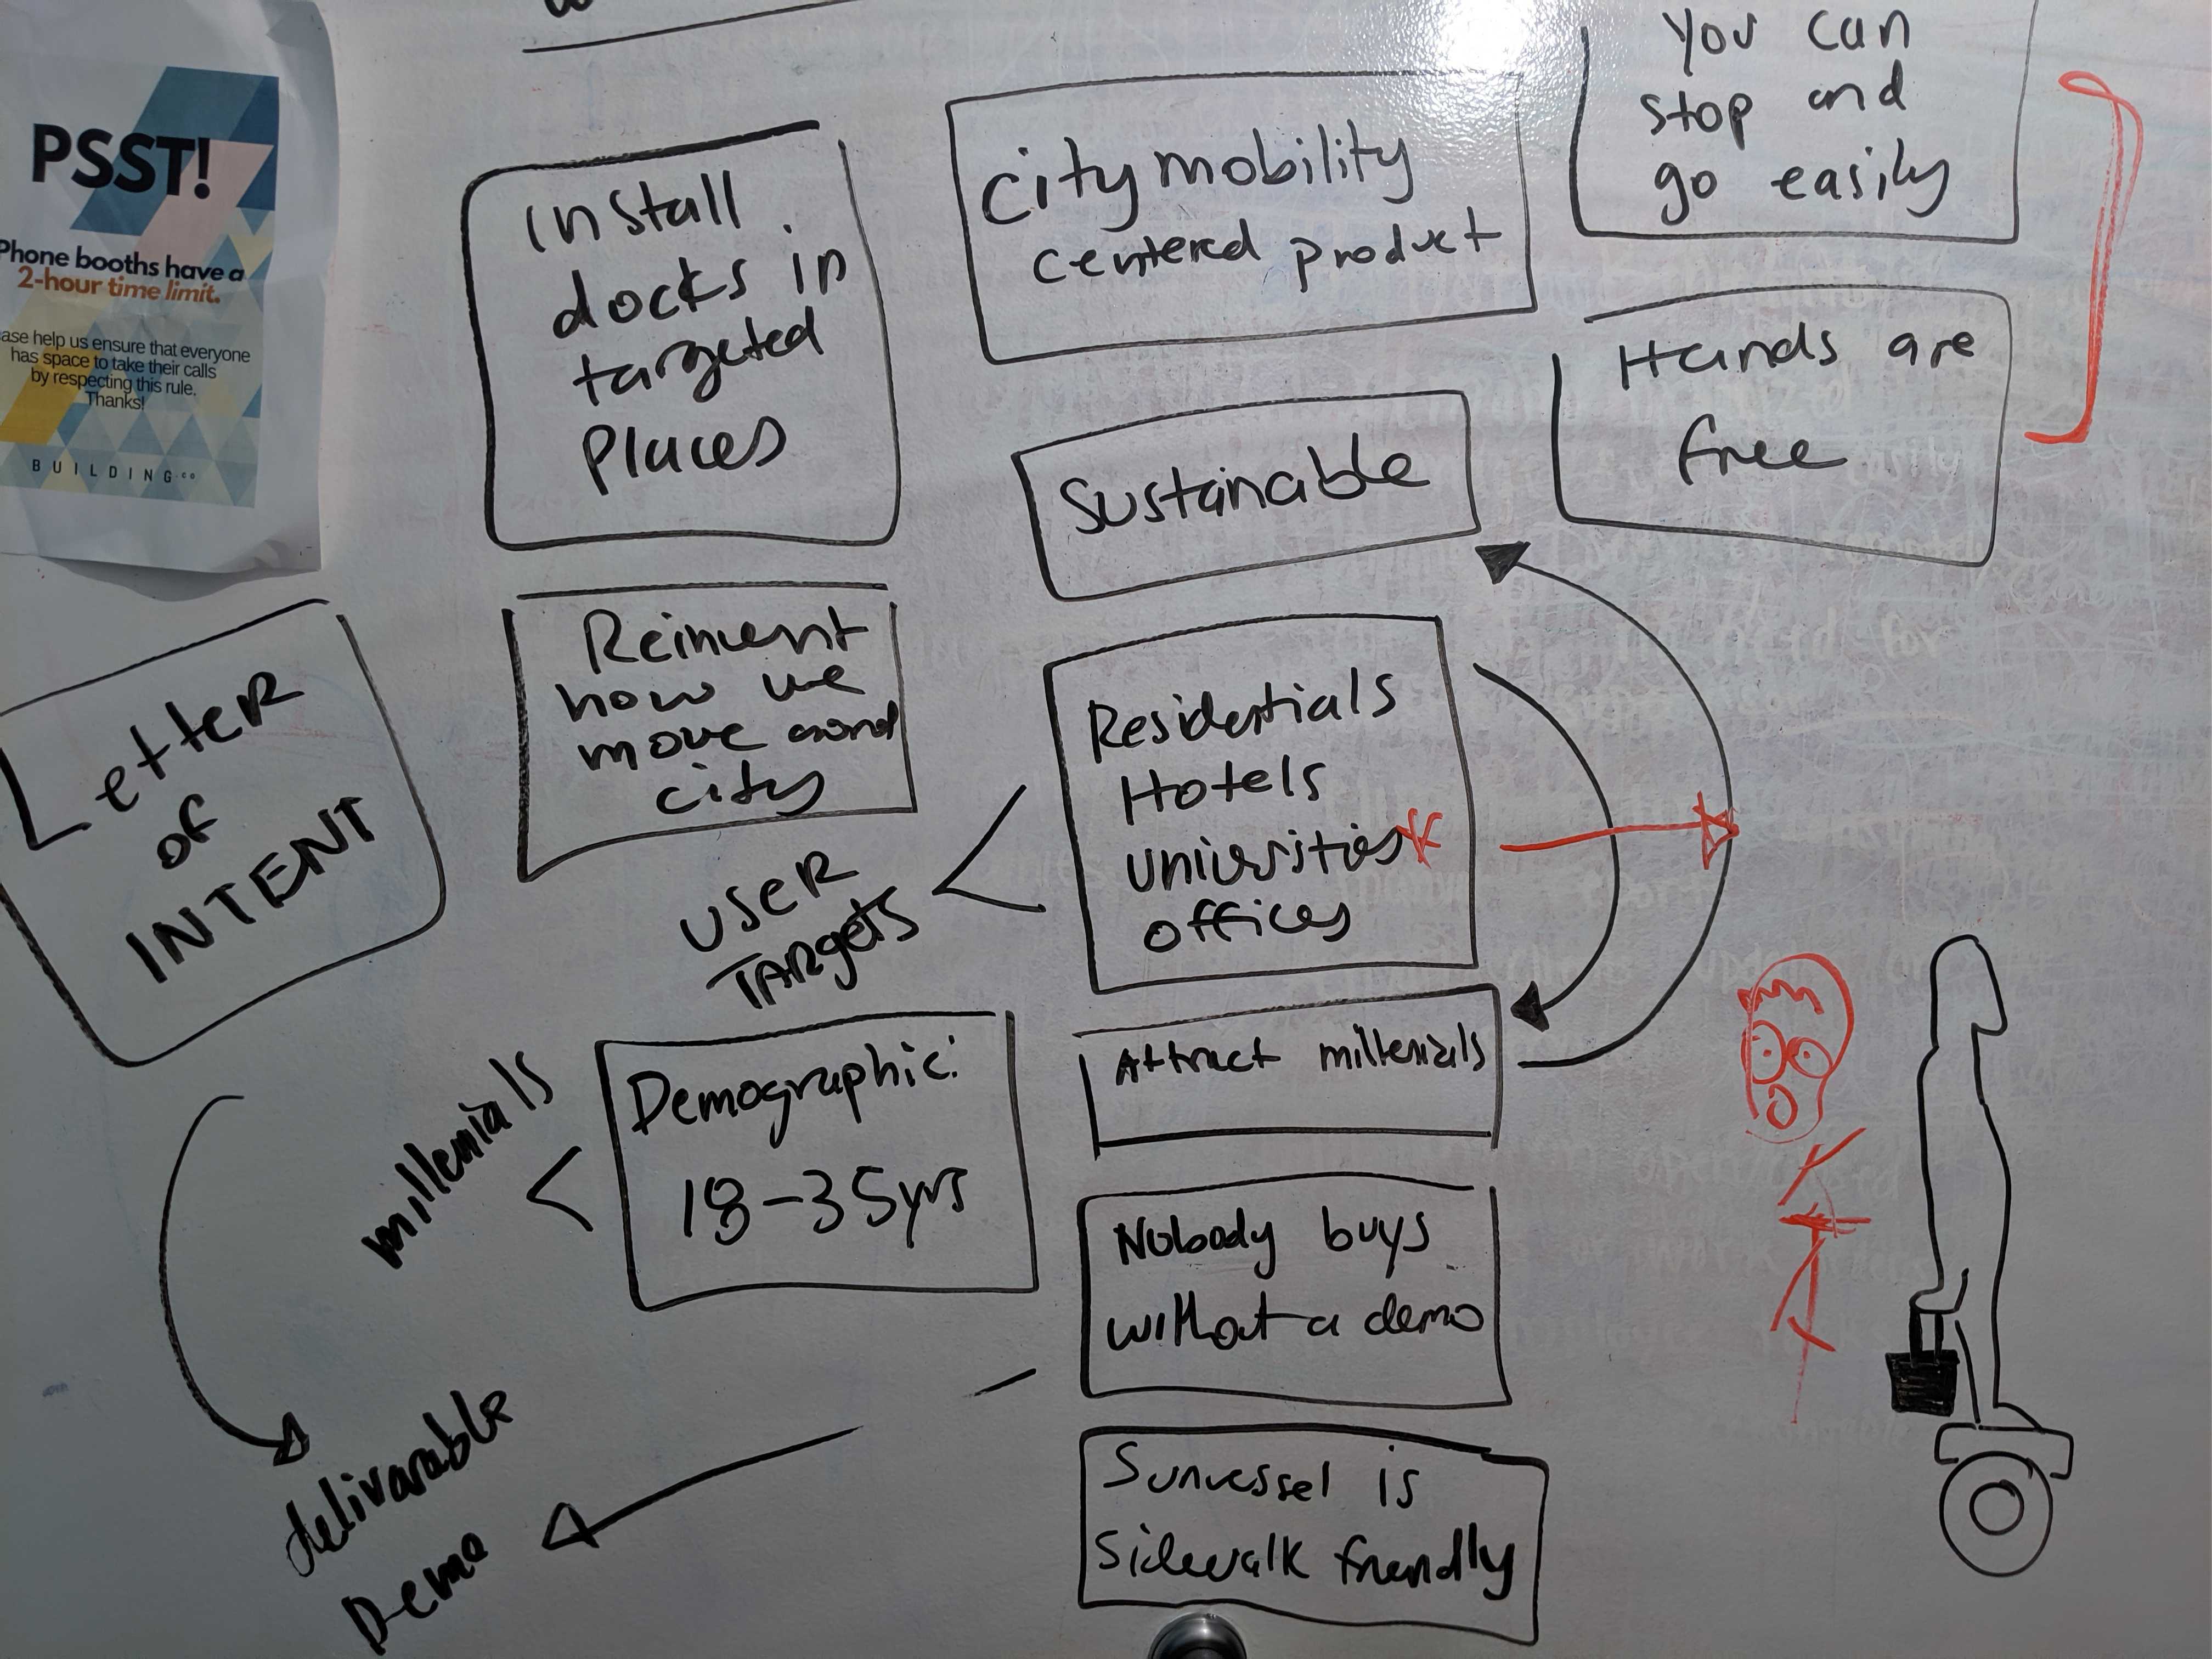 PSST!
Phone booths have a
2-hour time limit.
ase help us ensure that everyone
has space to take their calls
by respecting this rule.
Thanks!
BUILDING.co
Install
docks in
targeted
places
city mobility
centered product
You can
stop and
go easily
Hands are
free
Sustanable
Letter
of
INTENT
Reinvent
how we
move aorond
city
USER
TARgets
Residentials
Hotels
Univrsities*
offices
Attract millenials
millenials
Demographic:
18-35yrs
Nobody buys
without a demo
delivarable
Demo
Sunvessel is
Sidewalk friendly